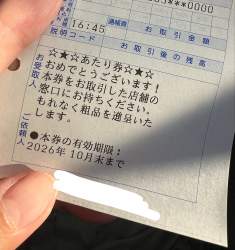 ***0000
16:45
通帳費
お取引金額
説明コード
お取引後の残高
☆★☆あたり券☆★☆
おめでとうございます!
本券をお取引した店舗の
窓口にお持ちください。
もれなく粗品を進呈いた
します。
●本券の有効期限:
2026年10月末まで
お受取人
ご依頼人